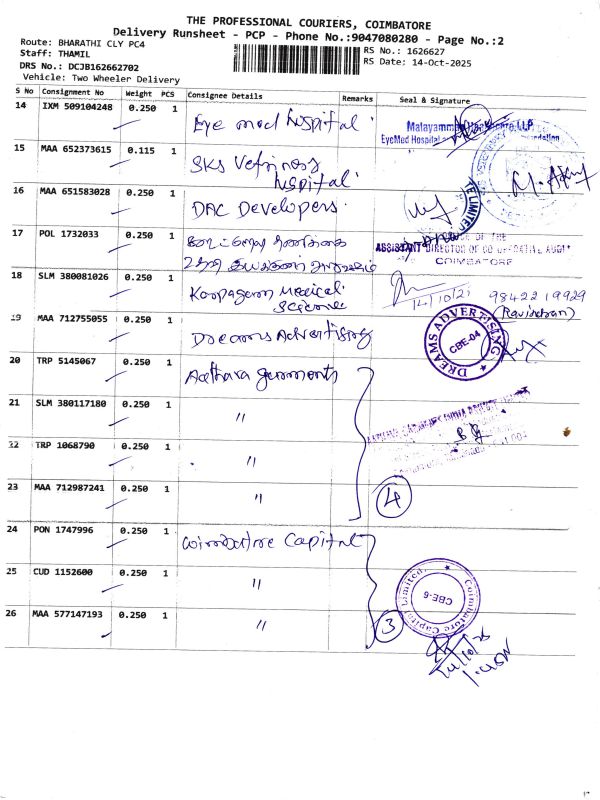 THE PROFESSIONAL COURIERS, COIMBATORE
Delivery Runsheet - PCP - Phone No.:9047080280 - Page No.:2
Route: BHARATHI CLY PC4
Staff: THAMIL
DRS No.: DCJB162662702
Vehicle: Two Wheeler Delivery
RS No.: 1626627
RS Date: 14-Oct-2025
S No Consignment No Weight PCS Consignee Details Remarks Seal & Signature
14 IXM 509104248 0.250 1 Eye med hospital
EyeMed Hospital
15 MAA 652373615 0.115 1 SKS Vetrinary
hospital
16 MAA 651583028 0.250 1 DAC Developers
17 POL 1732033 0.250 1
ASSISTANT DIRECTOR OF CO-OPERATIVE AUDIT
COIMBATORE
18 SLM 380081026 0.250 1 Karpagam Medical
Science
14/10/25 9842219929
(Ravindran)
19 MAA 712755055 0.250 1 Dreams Advertising
DREAMS ADVERTISING
CBE-04
20 TRP 5145067 0.250 1 Aathava garments
21 SLM 380117180 0.250 1 "
22 TRP 1068790 0.250 1 "
23 MAA 712987241 0.250 1 "
4
24 PON 1747996 0.250 1 Coimbatore Capital
25 CUD 1152600 0.250 1 "
Coimbatore Capital Limited
CBE-6
26 MAA 577147193 0.250 1 "
3
14/10/25